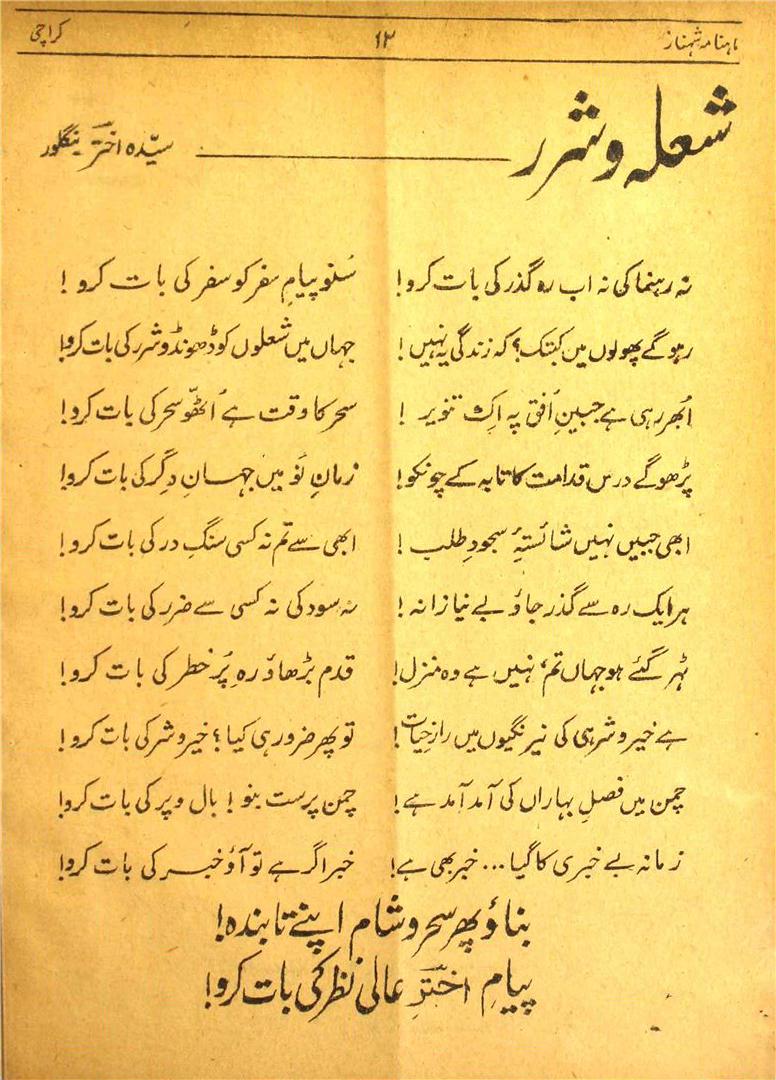 ماہنامہ شہناز ۱۳ کراچی
شعلہ و شرر ــــــ سیّدہ اختر بنگلور
نہ رہنما کی نہ اب رہ گذر کی بات کرو! سُنو پیامِ سفر کو سفر کی بات کرو!
رہو گے پھولوں میں کبتک؟ کہ زندگی یہ نہیں! جہاں میں شعلوں کو ڈھونڈو شرر کی بات کرو!
اُبھر رہی ہے جبینِ اُفق پہ اِک تنویر! سحر کا وقت ہے اُٹھو سحر کی بات کرو!
پڑھو گے درس قدامت کا تابہ کے چونکو! زمانِ نَو میں جہانِ دِگر کی بات کرو!
ابھی جبیں نہیں شائستۂ سجودِ طلب! ابھی سے تم نہ کسی سنگِ در کی بات کرو!
ہر ایک رہ سے گذر جاؤ بے نیازانہ! نہ سود کی نہ کسی سے ضرر کی بات کرو!
ٹہر گئے ہو جہاں تم، نہیں ہے وہ منزل! قدم بڑھاؤ رہِ پُر خطر کی بات کرو!
ہے خیر و شر ہی کی نیرنگیوں میں رازِ حیات! تو پھر ضرور ہی کیا؟ خیر و شر کی بات کرو!
چمن میں فصلِ بہاراں کی آمد آمد ہے! چمن پرست بنو! بال و پر کی بات کرو!
زمانہ بے خبری کا گیا ... خبر بھی ہے! خبر اگر ہے تو آؤ خبر کی بات کرو!
بناؤ پھر سحر و شام اپنے تابندہ!
پیامِ اخترِ عالی نظر کی بات کرو!